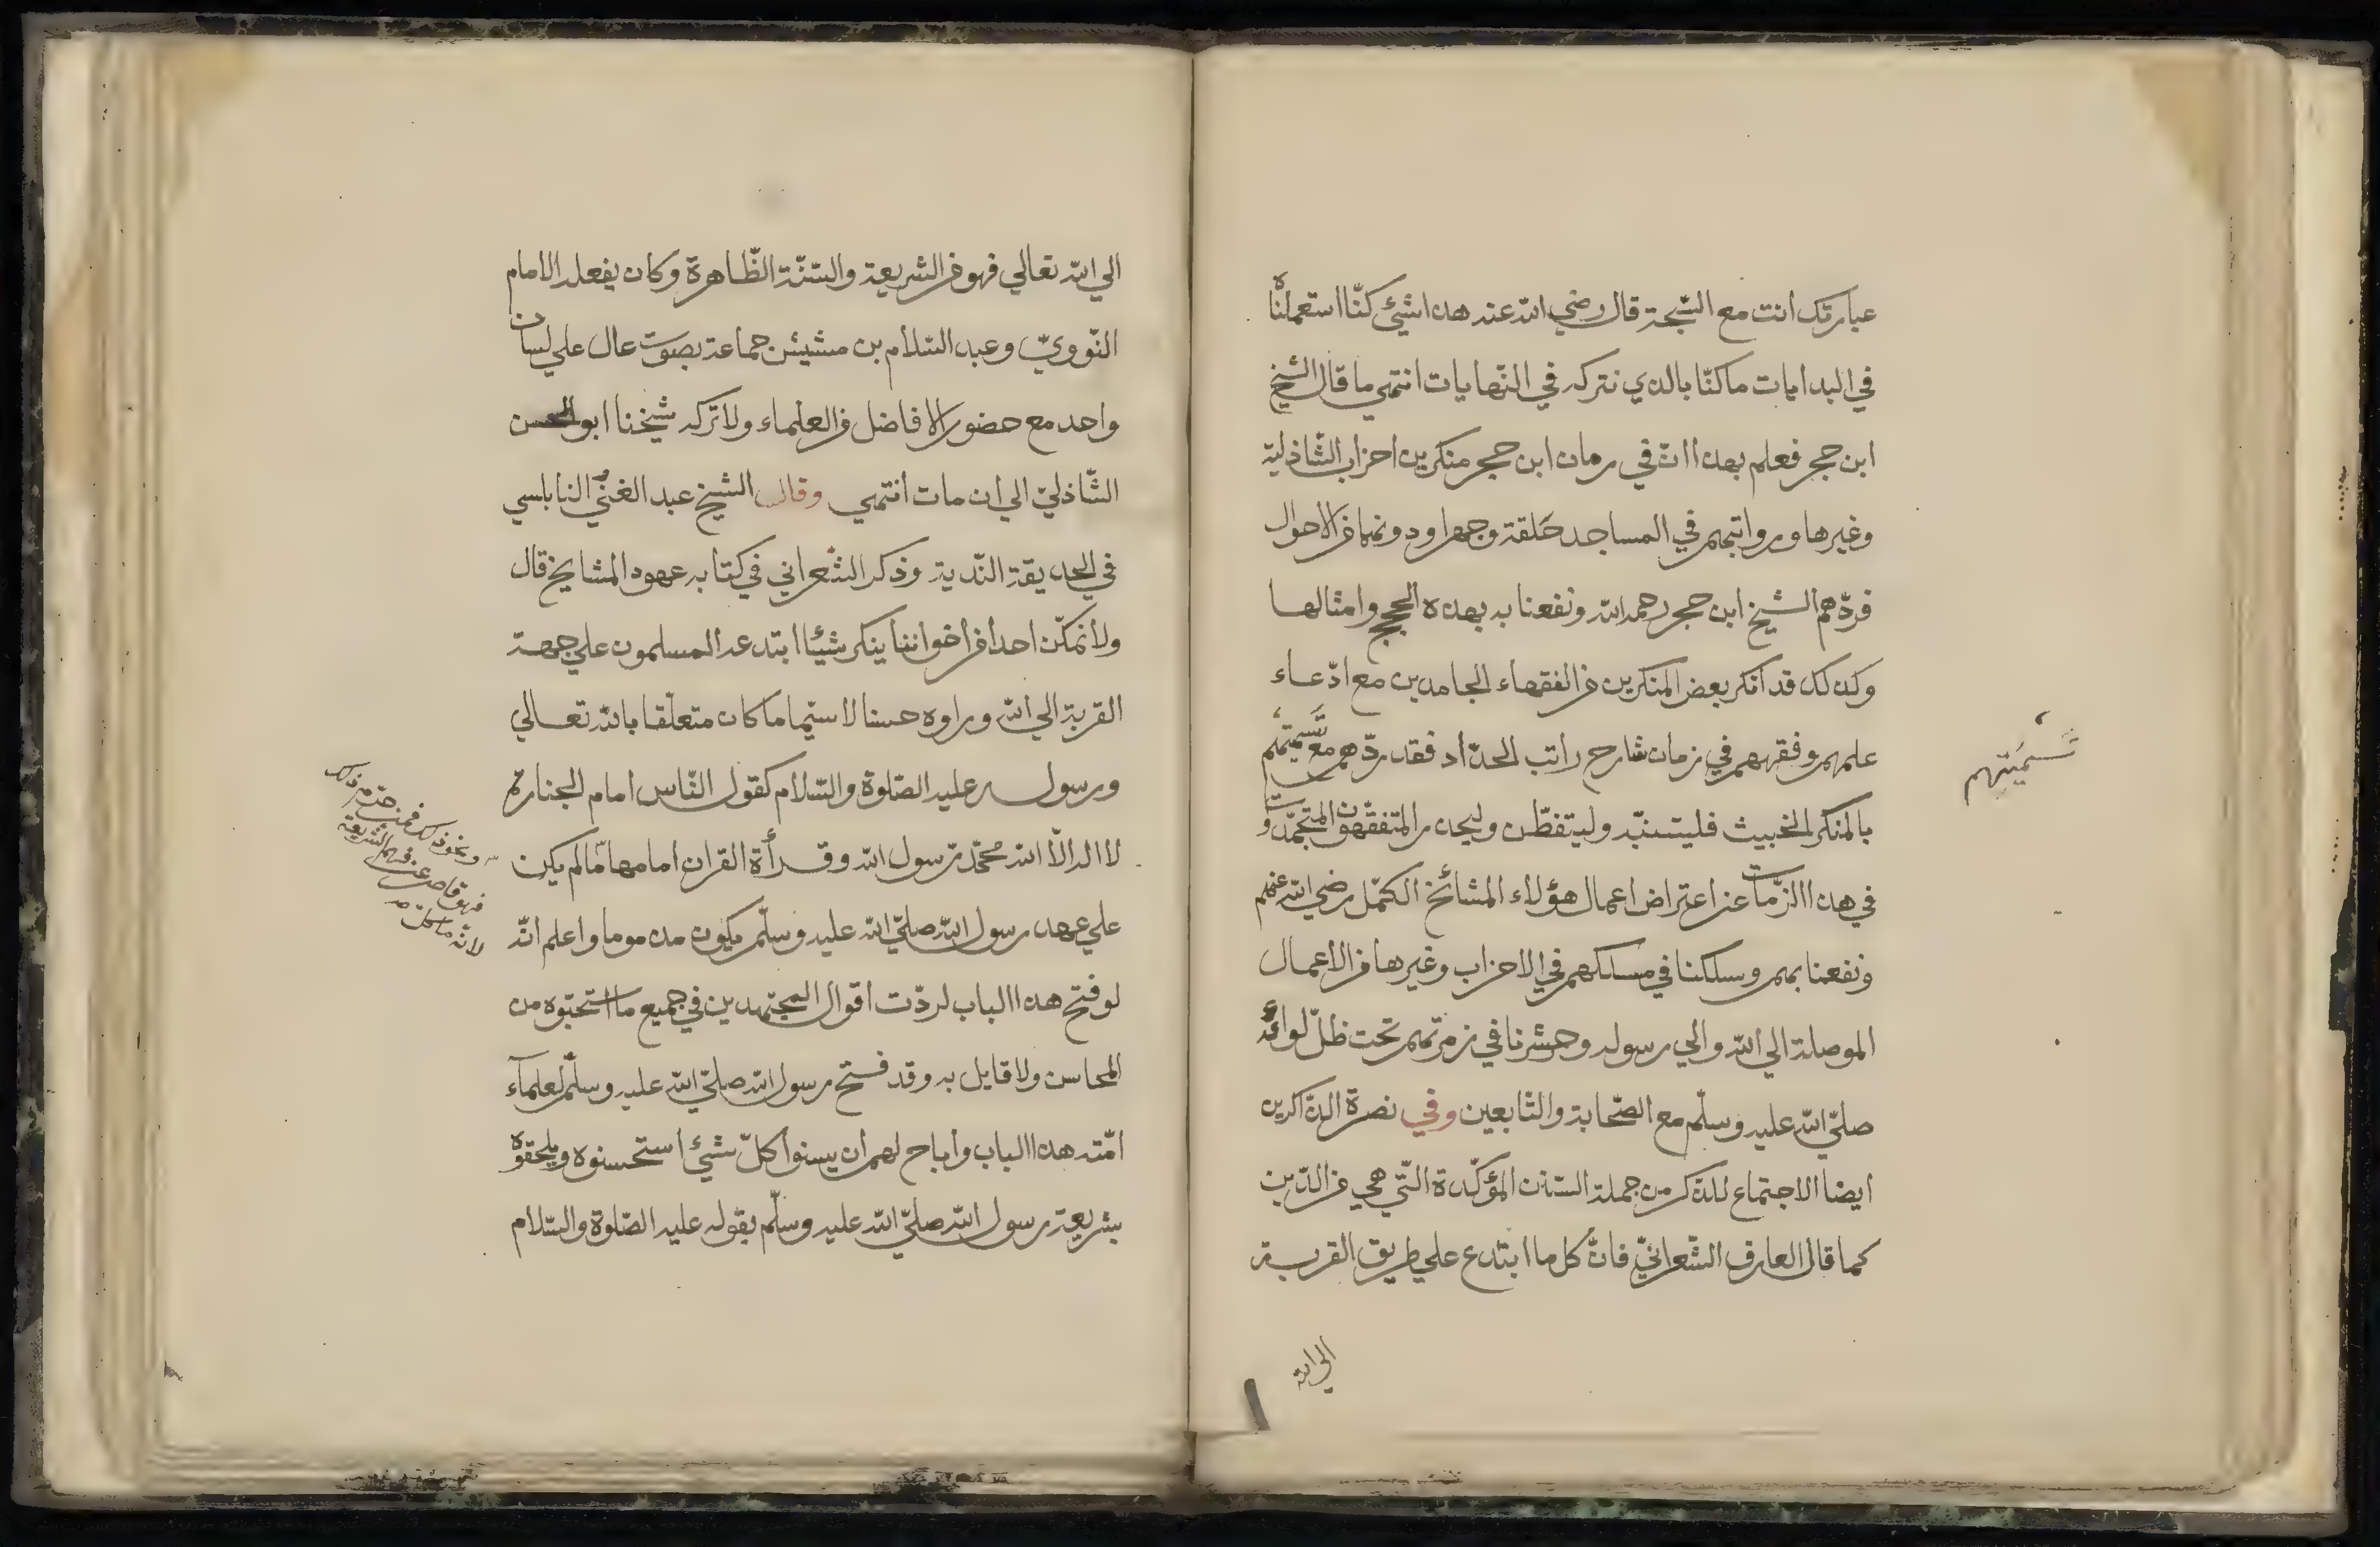 عبارتك انت مع السّبحة قال رضي الله عنه هذا شيئ كنّا استعملناه
في البدايات ما كنّا بالذي نتركه في النّهايات انتهي ما قال الشيخ
ابن حجر فعلم بهذا انّ في زمان ابن حجر منكرين احزاب الشّاذلية
وغيرها ورواتبهم في المساجد حَلقة وجهرا ودونها من الاحوال
فردّهم الشيخ ابن حجر رحمه الله ونفعنا به بهذه الحجج وامثالها
وكذلك قد انكر بعض المنكرين من الفقهاء الجامدين مع ادّعاء
علمهم وفقههم في زمان شارح راتب الحدّاد فقد ردّهم مع تَسْمِيَتِهم
تَسْمِيَتِهم
بالمنكر الخبيث فليتنبّه وليتفطّن وليحذر المتفقّهون المتجمّدون
في هذا الزّمان عن اعتراض اعمال هؤلاء المشائخ الكمّل رضي الله عنهم
ونفعنا بهم وسلكنا في مسلكهم في الاحزاب وغيرها من الاعمال
الموصلة الي الله والي رسوله وحشرنا في زمرتهم تحت ظلّ لوائه
صلّي الله عليه وسلّم مع الصّحابة والتّابعين وفي نصرة الذّاكرين
ايضا الاجتماع للذّكر من جملة السّنن المؤكّدة الّتي هي من الدّين
كما قال العارف الشّعرانيّ فانّ كل ما ابتدع علي طريق القربة
الي الله
الي الله تعالي فهو من الشريعة والسّنّة الظّاهرة وكان يفعله الامام
النّوويّ وعبد السّلام بن مشيش جماعة بصوت عال علي لسان
واحد مع حضور الافاضل من العلماء ولا تركه شيخنا ابو الحسن
الشّاذليّ الي ان مات انتهي وقال الشيخ عبد الغنيّ النابلسي
في الحديقة النّدية وذكر الشّعراني في كتابه عهود المشايخ قال
ولا نمكّن احدا من اخواننا ينكر شيئا ابتدعه المسلمون علي جهة
القربة الي الله وراوه حسنا لا سيّما ما كان متعلّقا بالله تعالي
ورسوله عليه الصّلوة والسّلام كقول النّاس امام الجنازة
لا اله الّا الله محمّد رسول الله وقرأة القران امامها ممّا لم يكن
ونحو ذلك فمن حرّم ذلك
فهو قاصر عن فهم الشّريعة
لانّه ما كلّ
علي عهد رسول الله صلّي الله عليه وسلّم يكون مذموما واعلم انّه
لو فتح هذا الباب لردّت اقوال المجتهدين في جميع ما استحبّوه من
المحاسن ولا قايل به وقد فتح رسول الله صلّي الله عليه وسلّم لعلمآء
امّته هذا الباب واباح لهم ان يسنوا كلّ شيئ استحسنوه ويلحقوه
بشريعة رسول الله صلّي الله عليه وسلّم بقوله عليه الصّلوة والسّلام